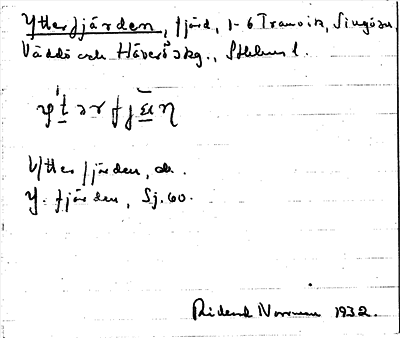 Ytterfjärden, fjärd, 1-6 Tranvik, Singö sn,
Väddö och Häverö skg., Sthlms l.
Ytterfjärden, ek.
Y. fjärden, Sj. 60.
Rickard Norrman 1932.